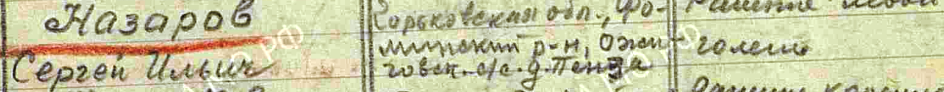 Назаров
Сергей Ильич
Горьковская обл., Фо-
минский р-н, Ожи-
говск. с/с. д. Пенза
Ранение левой
голени
Ранение